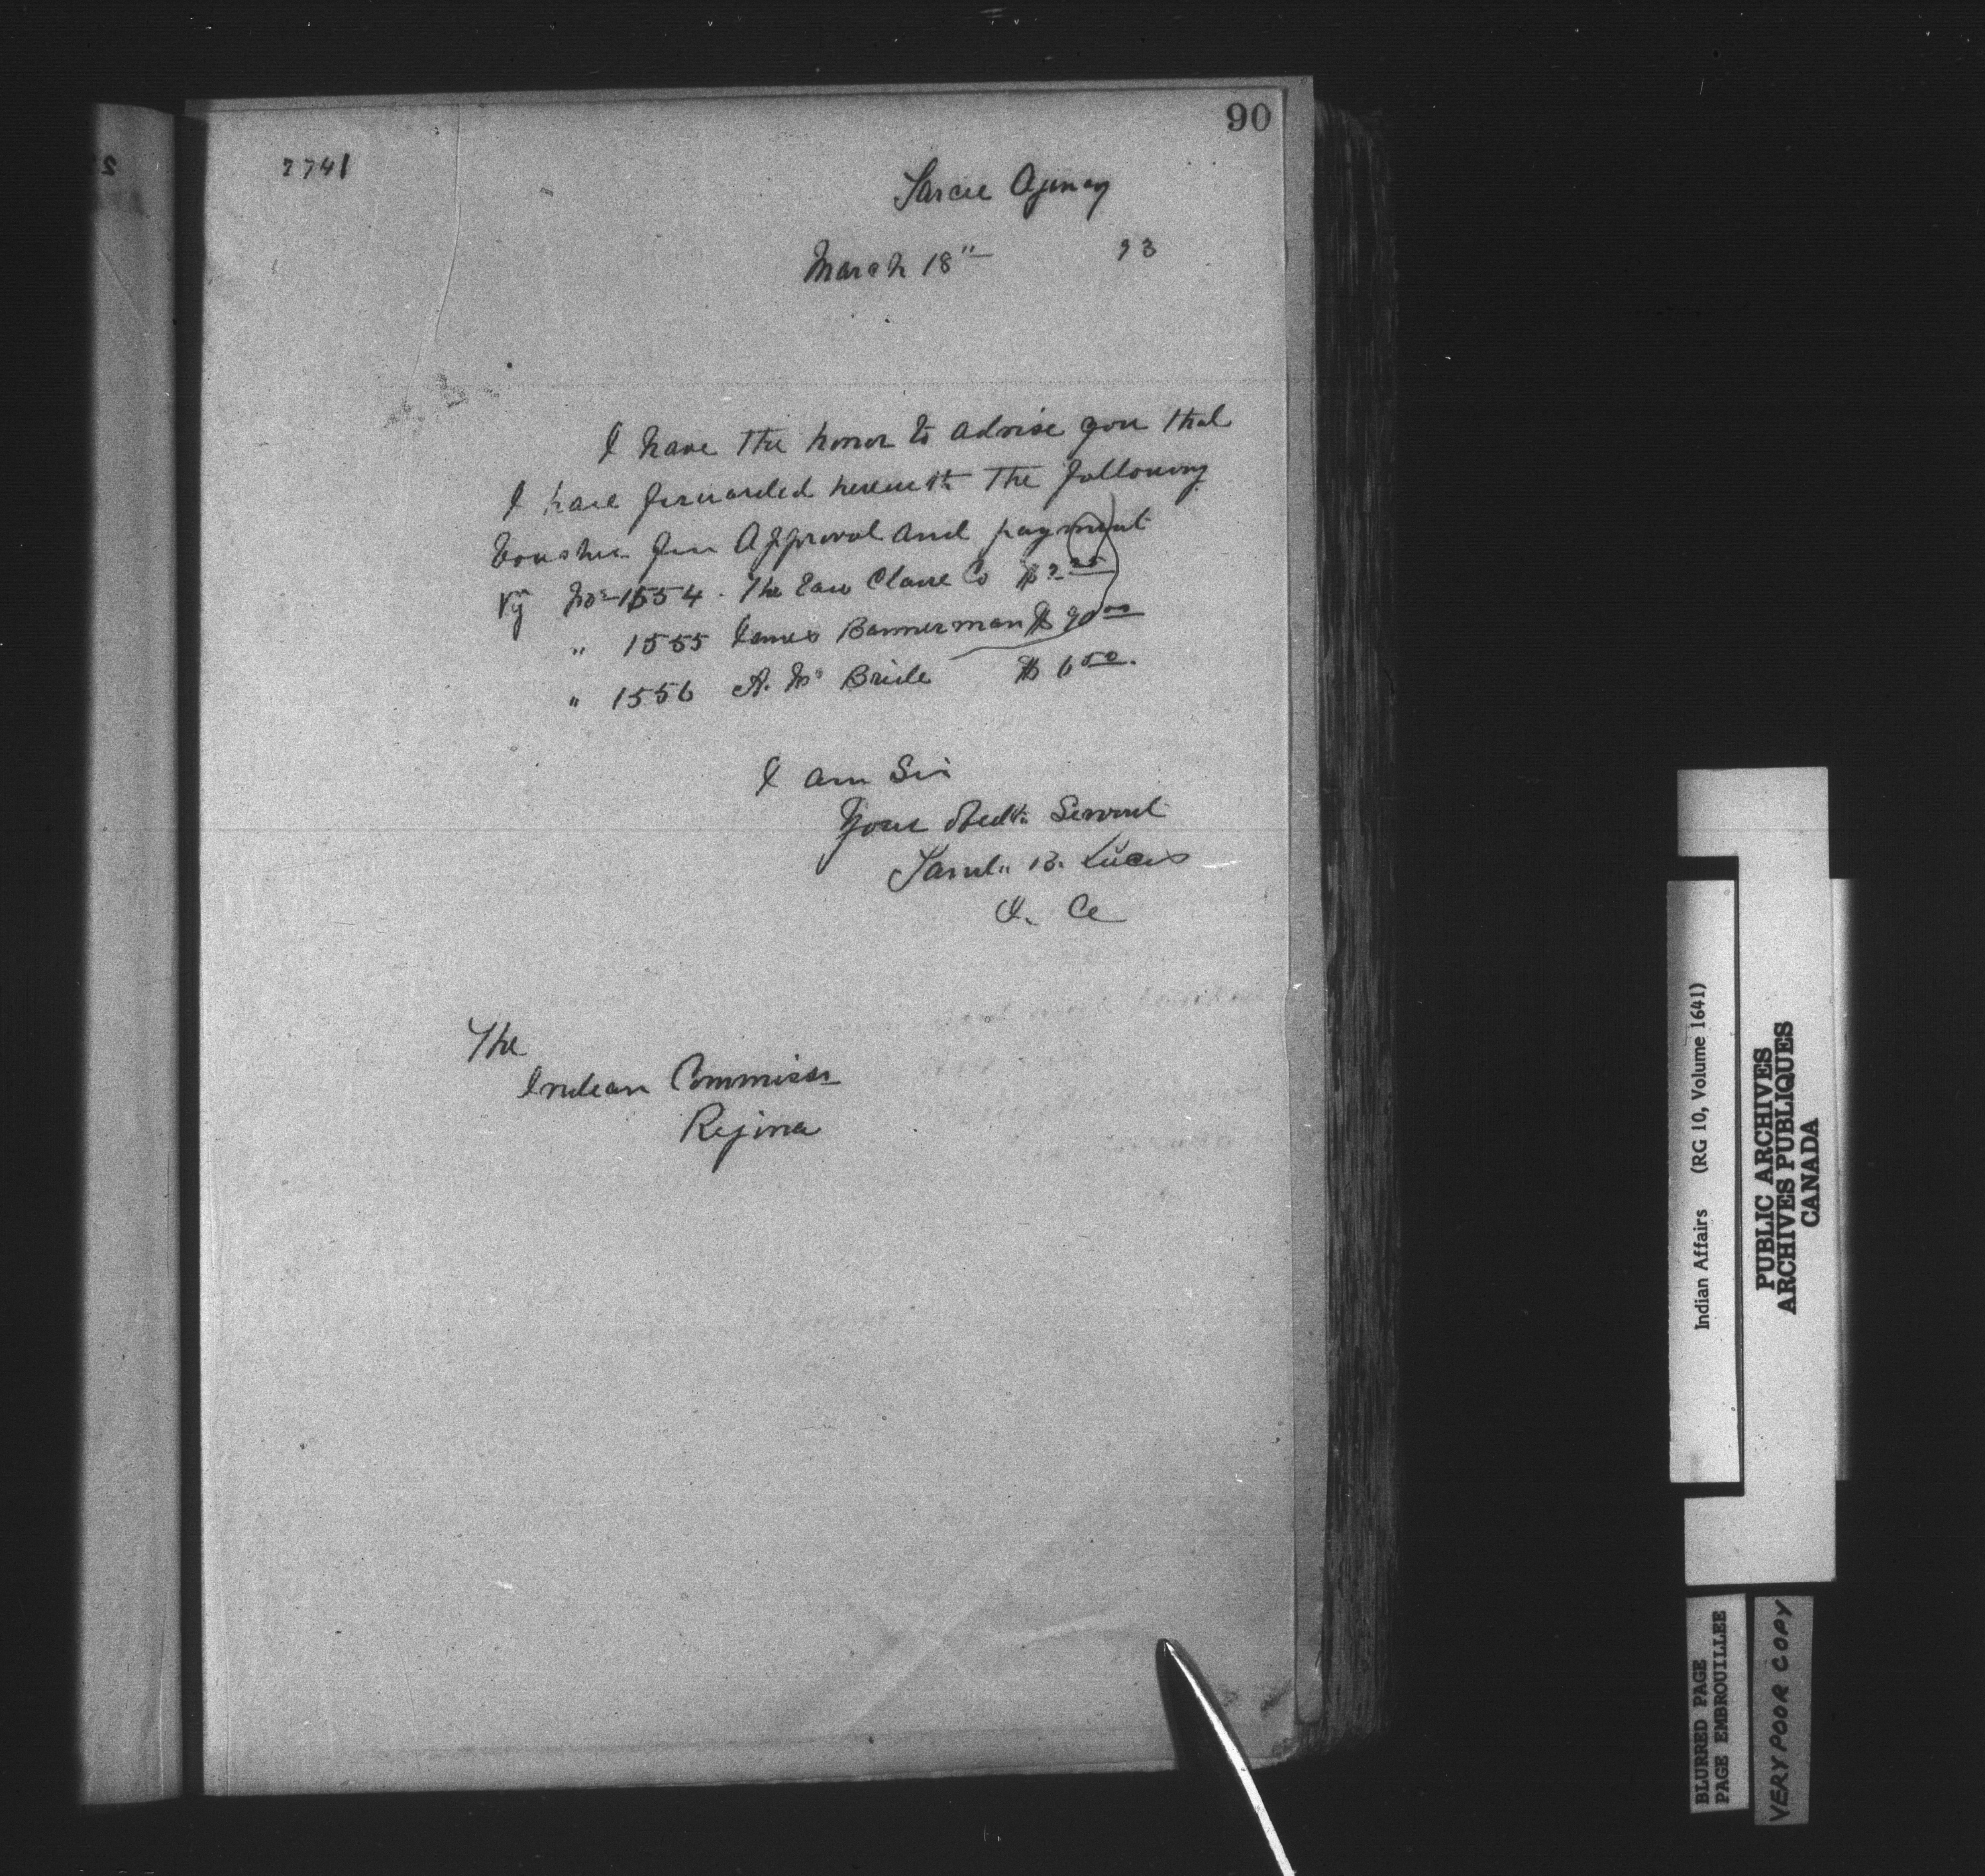 90
7741
Sarcee Agency
March 18" 93
I have the honor to advise you that
I have forwarded herewith the following
Voucher for Approval and payment
Vg No 1554 . The Eau Claire Co $
" 1555 James Bannerman $ 90 00
" 1556 A. Mc Bride $ 6 50.
I am Sir
Your Obedt. Servant
Saml. B. Lucas
I. A
The
Indian Commissr
Regina
Indian Affairs (RG 10, Volume 1641)
PUBLIC ARCHIVES
ARCHIVES PUBLIQUES
CANADA
BLURRED PAGE
PAGE EMBROUILLEE
VERY POOR COPY